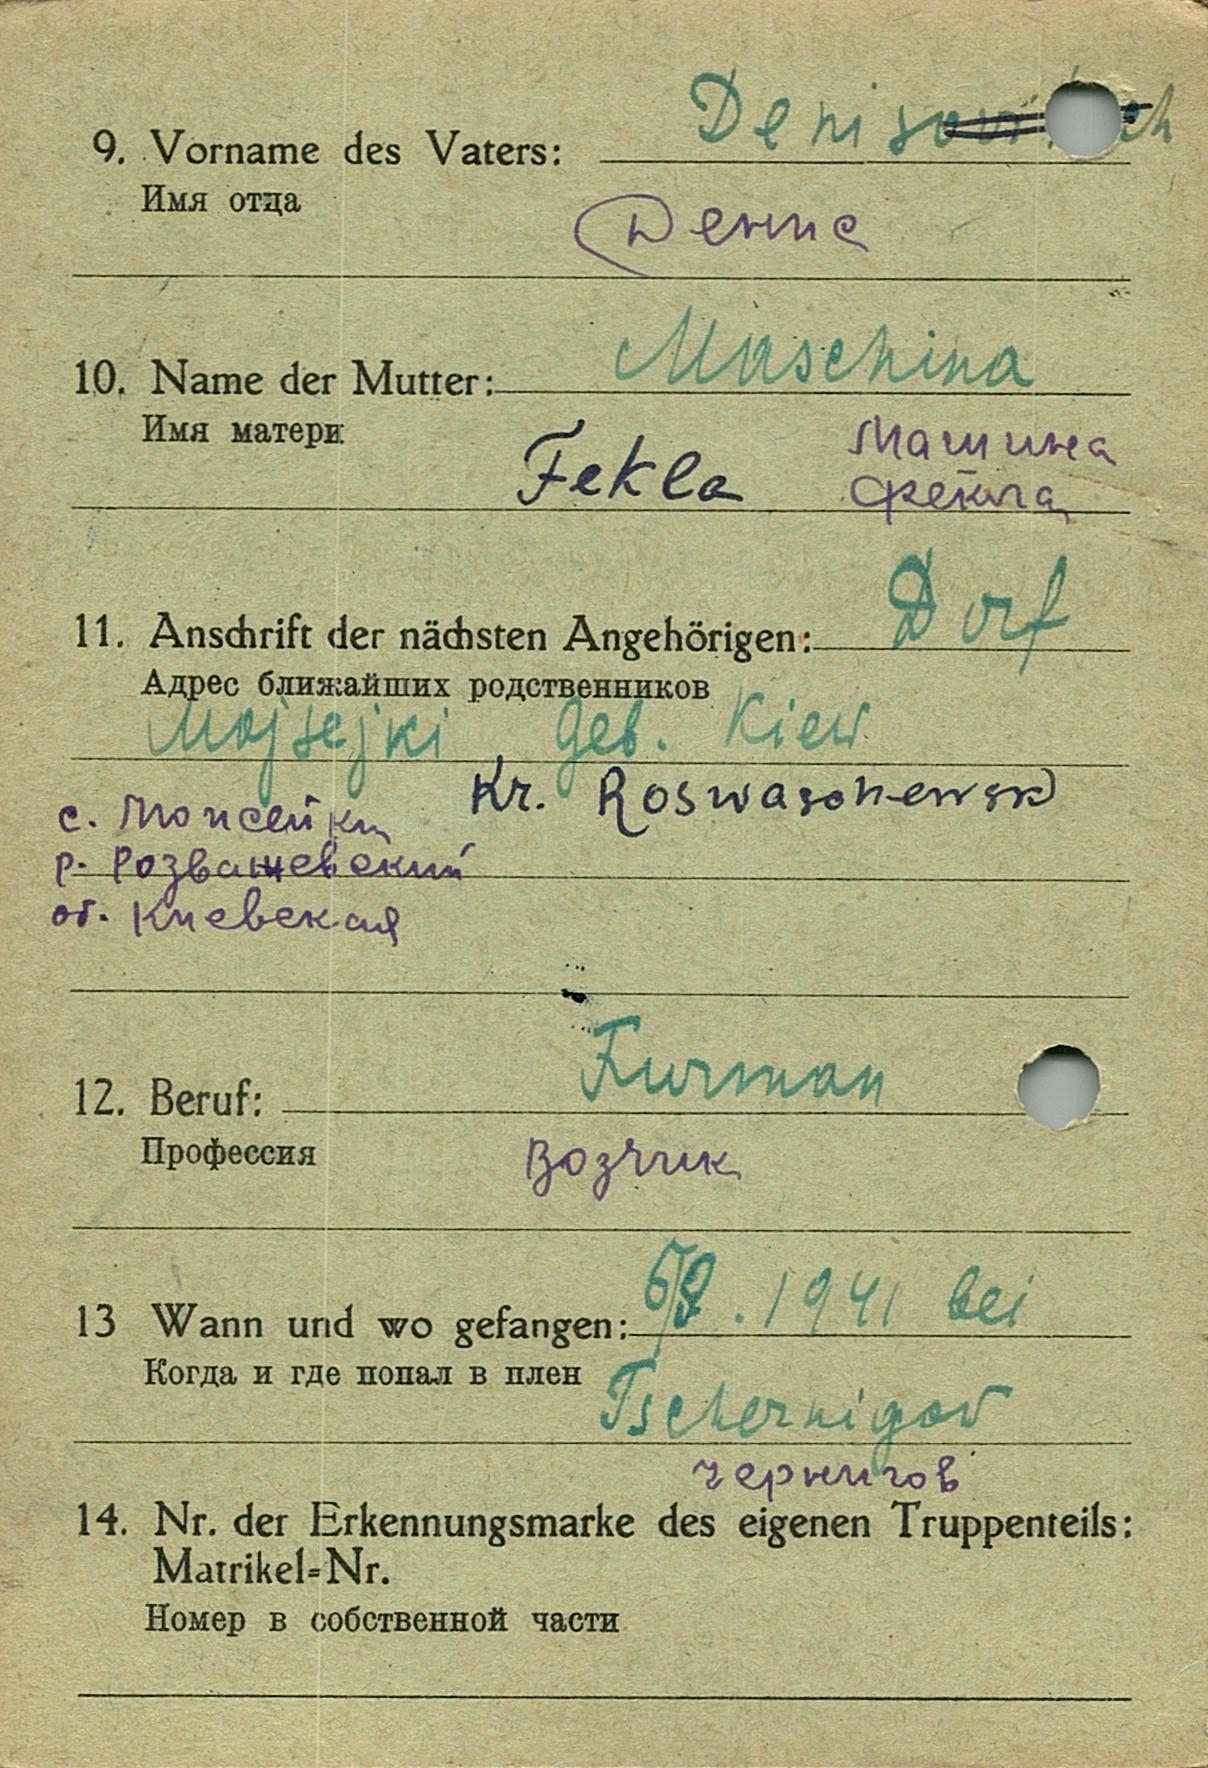 9. Vorname des Vaters: Denisowitsch
Имя отца
Денис
10. Name der Mutter: Maschina
Имя матери
Fekla Машина
Фекла
11. Anschrift der nächsten Angehörigen: Dorf
Адрес ближайших родственников
Mojsejki Geb. Kiew
Kr. Roswaschewsk
с. Моисейки
р. Розважевский
об. Киевская
12. Beruf: Furman
Профессия
Возчик
13 Wann und wo gefangen: 6/9. 1941 bei
Когда и где попал в плен
Tschernigov
Чернигов
14. Nr. der Erkennungsmarke des eigenen Truppenteils:
Matrikel=Nr.
Номер в собственной части